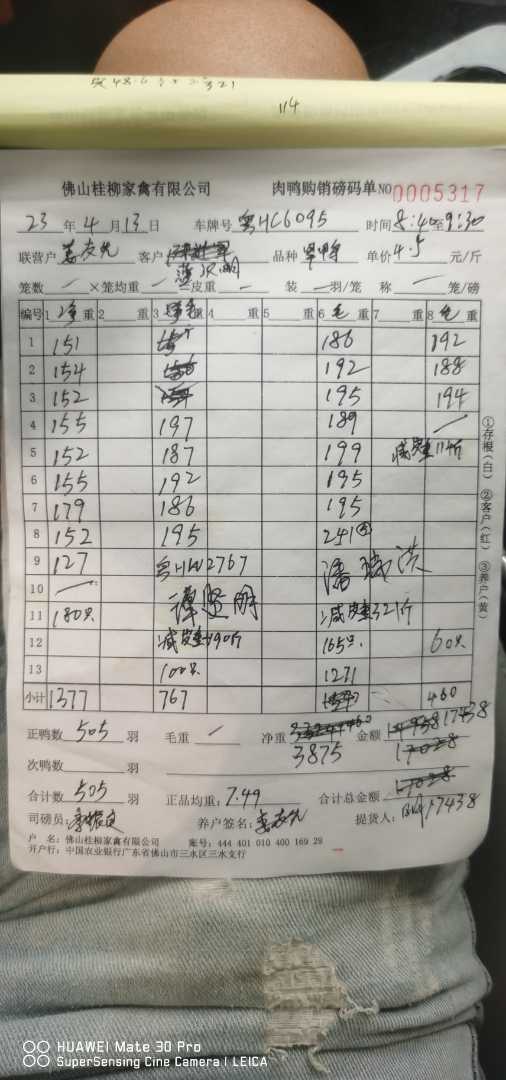 114
佛山桂柳家禽有限公司 肉鸭购销磅码单 NO 0005317
23 年 4 月 13 日 车牌号 粤HC6095 时间 8:40至9:30
联营户 客户 品种 单价 4.5 元/斤
笼数 一 ×笼均重 一 皮重 一 装 一 羽/笼 称 一 笼/磅
编号 1 净 重 2 重 3 毛 重 4 重 5 重 6 毛 重 7 重 8 毛 重
1 151 186 192
2 154 192 188
3 152 195 194
4 155 197 189 一
5 152 187 199 减 114斤
6 155 192 195
7 179 186 195
8 152 195 241
9 127 粤HW2767
10 一 谭贤明
11 180只 减 321斤
12 减 190斤 165只 60只
13 100只 1271
小计 1377 767 460
正鸭数 505 羽 毛重 一 净重 3875 金额 17438
次鸭数 羽
合计数 505 羽 正品均重: 7.49 合计总金额
司磅员: 养户签名: 提货人: 17438
户 名: 佛山桂柳家禽有限公司 账号: 444 401 010 400 169 29
开户行: 中国农业银行广东省佛山市三水区三水支行
①存根(白) ②客户(红) ③养户(黄)
HUAWEI Mate 30 Pro
SuperSensing Cine Camera | LEICA